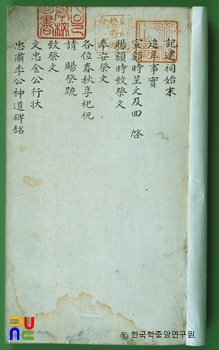 記建祠始末
追享事實
宣額時呈文及回 啓
賜額時致祭文
奉安祭文
各位春秋享祀祝
請 賜祭號
致祭文
文忠金公行狀
忠肅李公神道碑銘
© 한국학중앙연구원